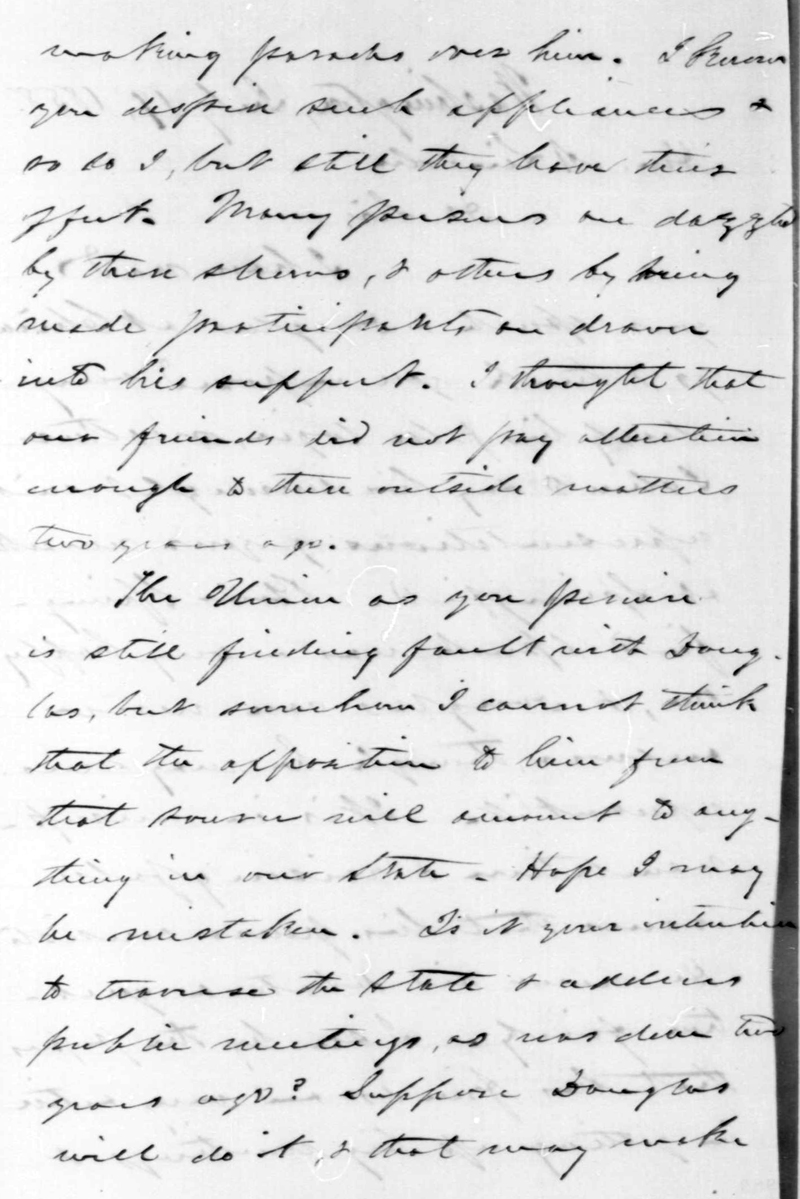 making parades over him. I know
you despise such appliances &
so do I, but still they have their
effect. Many persons are dazzled
by these shows, & others by being
made participants are drawn
into his support. I thought that
our friends did not pay attention
enough to these outside matters
two years ago.
The Union as you perceive
is still finding fault with Doug-
las, but somehow I cannot, think
that the opposition to him from
that source will amount to any-
thing in our State - Hope I may
be mistaken. Is it your intention
to traverse the State & address
public meetings, as was done two
years ago? Suppose Douglas
will do it, & that may make